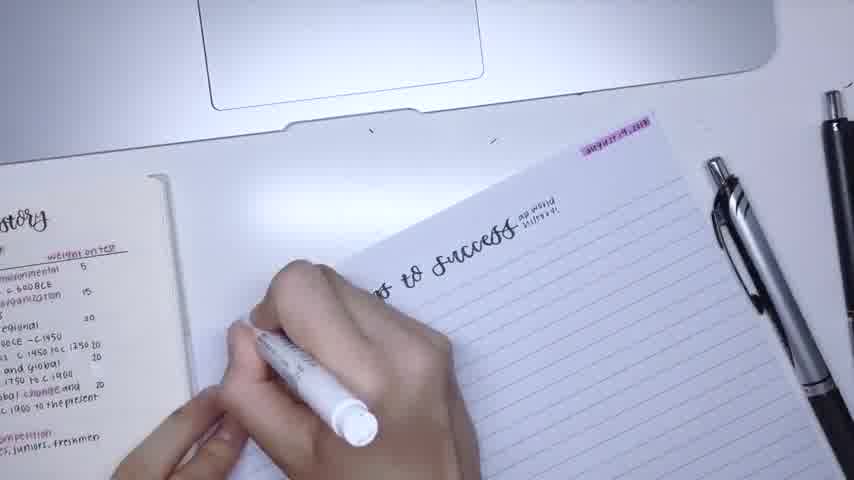 story
weight on test
environmental 5
c. 600 BCE
organization 15
regional 20
00 CE - c. 1450
c. 1450 to c. 1750 20
and global 20
c. 1750 to c. 1900
obal change and 20
c. 1900 to the present
competition
es, juniors, freshmen
august 19, 2018
to success
ap world
history!